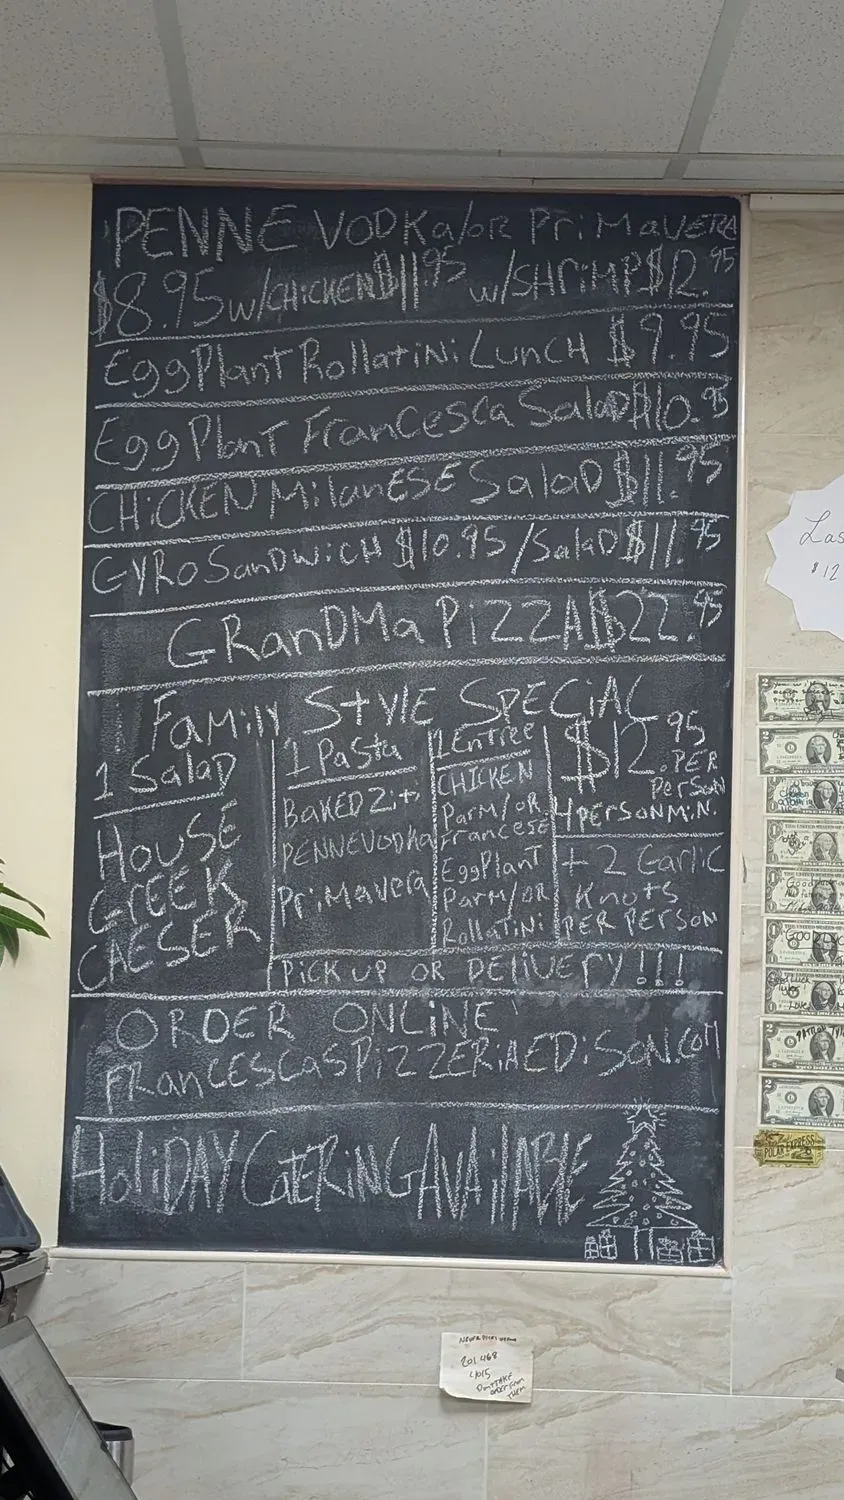 PENNE VODKa/OR PriMaVERA
$8.95 w/CHiCKEN $11.95 w/SHriMP $12.95
EggPlant RollatiNi LuncH $9.95
EggPlanT FranCesca SalaD $10.95
CHiCKEN MilanESE SalaD $11.95
GYRO SanDWiCH $10.95 /SalaD $11.95
GRanDMa PiZZA $22.95
FaMily StylE SPECiaL
1 SalaD
HOUSE
GrEEK
CAESER
1 Pasta
BaKED Ziti
PENNE VODKa
PriMavera
1 Entree
CHICKEN
Parm/OR
Francese
EggPlanT
Parm/OR
RollaTiNi
$12.95
.PER
PerSON
4 PERSON MiN.
+ 2 Garlic
Knots
PER PERSON
PiCK UP OR DELiVERY!!!
ORDER ONLiNE
FRanCESCaSPiZZERiAEDiSON.COM
HoliDAY CaTERiNG AVAilABlE
Las
$12
POLAR EXPRESS
201 468
DON'T TAKE
ORDER FROM
THEM